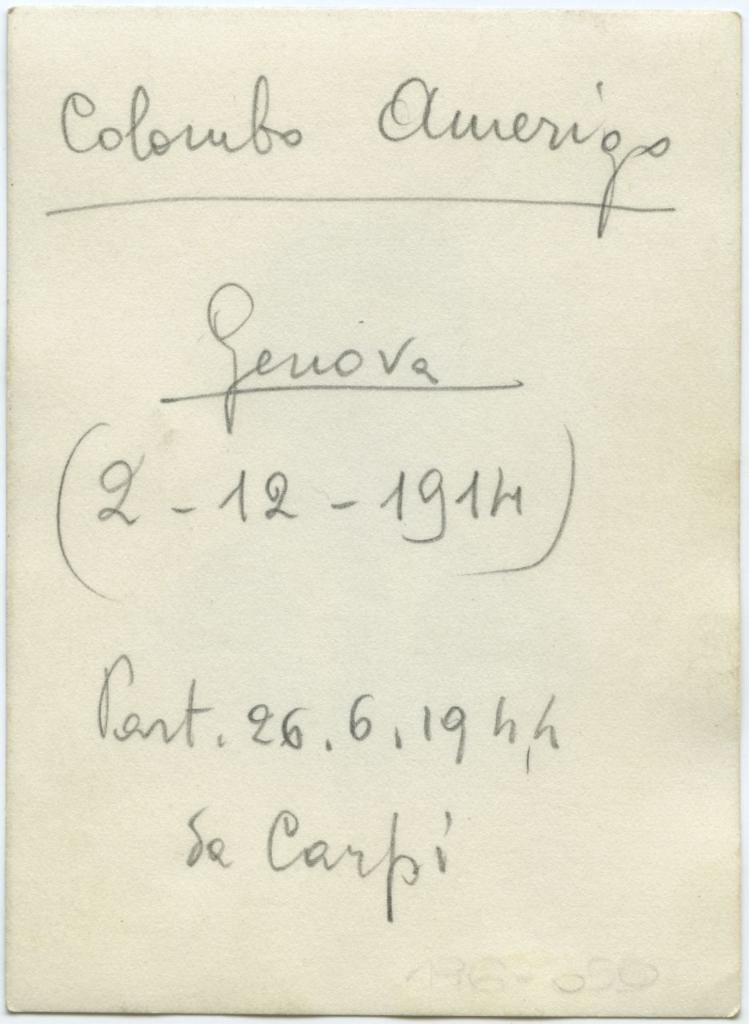 Colombo Amerigo
Genova
(2-12-1914)
Part. 26.6.1944
da Carpi